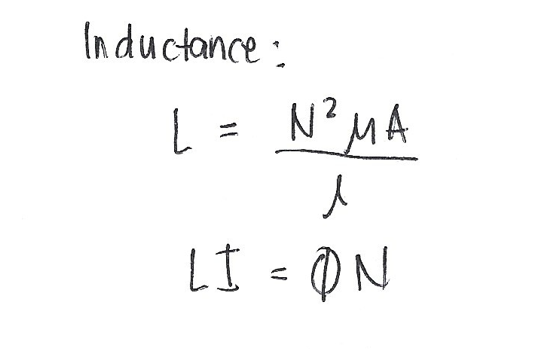 Inductance:
L = N²μA / l
LI = ΦN